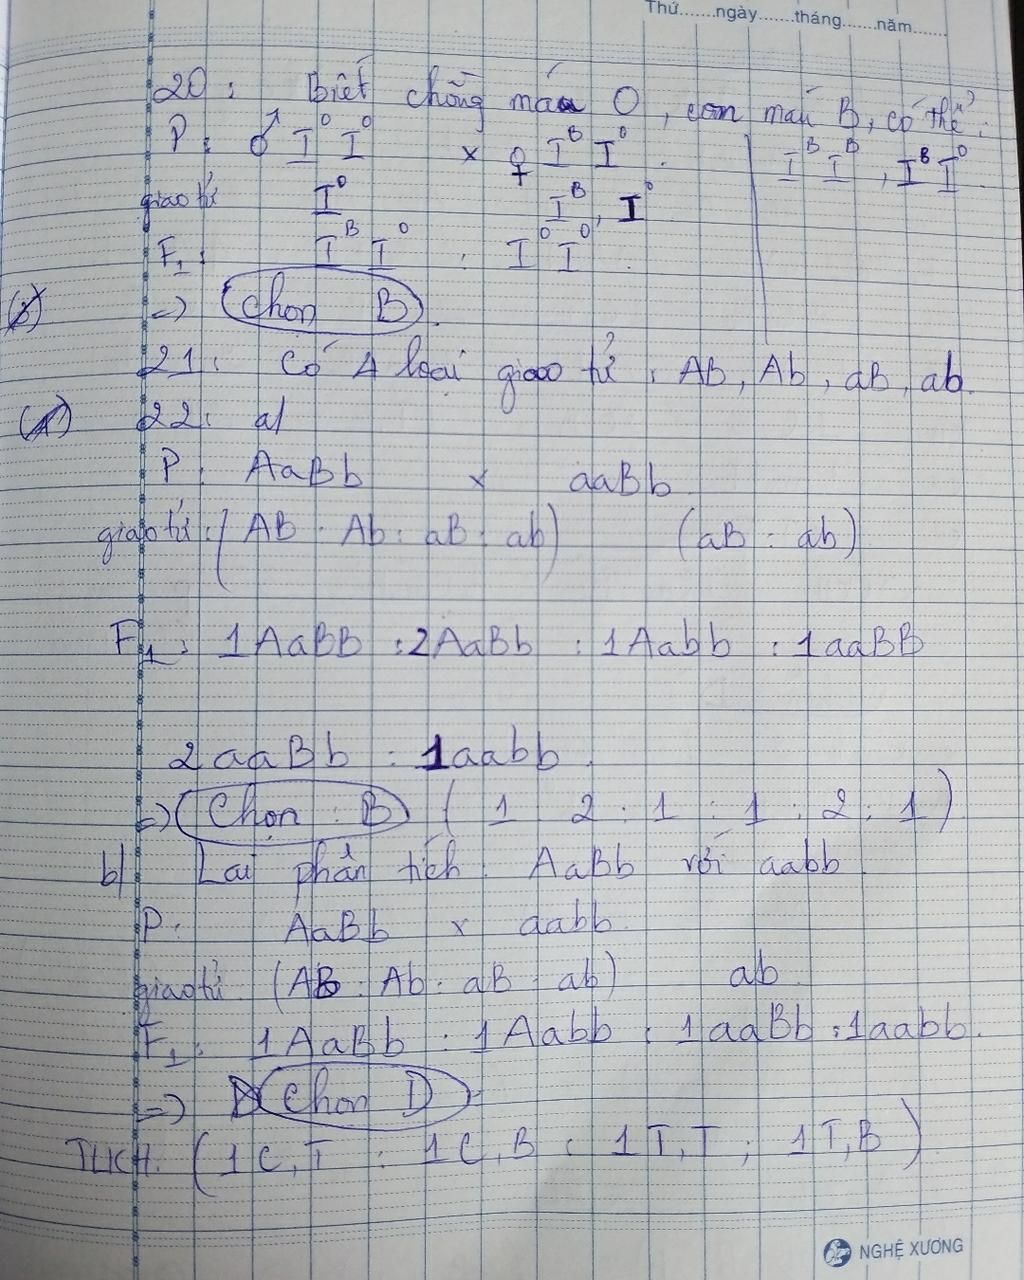 Thứ.......ngày.......tháng.......năm.......
20: Biết chồng máu O, con máu B, có thể:
P: ♂ IᴼIᴼ x ♀ IᴮIᴼ. IᴮIᴮ, IᴮIᴼ
giao tử Iᴼ Iᴮ, Iᴼ
F₁: IᴮIᴼ : IᴼIᴼ.
=> Chọn B.
21: Có 4 loại giao tử: AB, Ab, aB, ab.
22: a/
P: AaBb x aaBb
giao tử: (AB : Ab : aB : ab) (aB : ab)
F₁: 1AaBB : 2AaBb : 1Aabb : 1aaBB
2aaBb : 1aabb.
=> Chọn : B (1 2 : 1 : 1 : 2 : 1)
b/ Lai phân tích. AaBb với aabb
P: AaBb x aabb.
giao tử (AB : Ab : aB : ab) ab
F₁: 1AaBb : 1Aabb : 1aaBb : 1aabb.
=> Chọn D
TLKH. (1C,T : 1C,B : 1T,T : 1T,B)
NGHỆ XƯƠNG